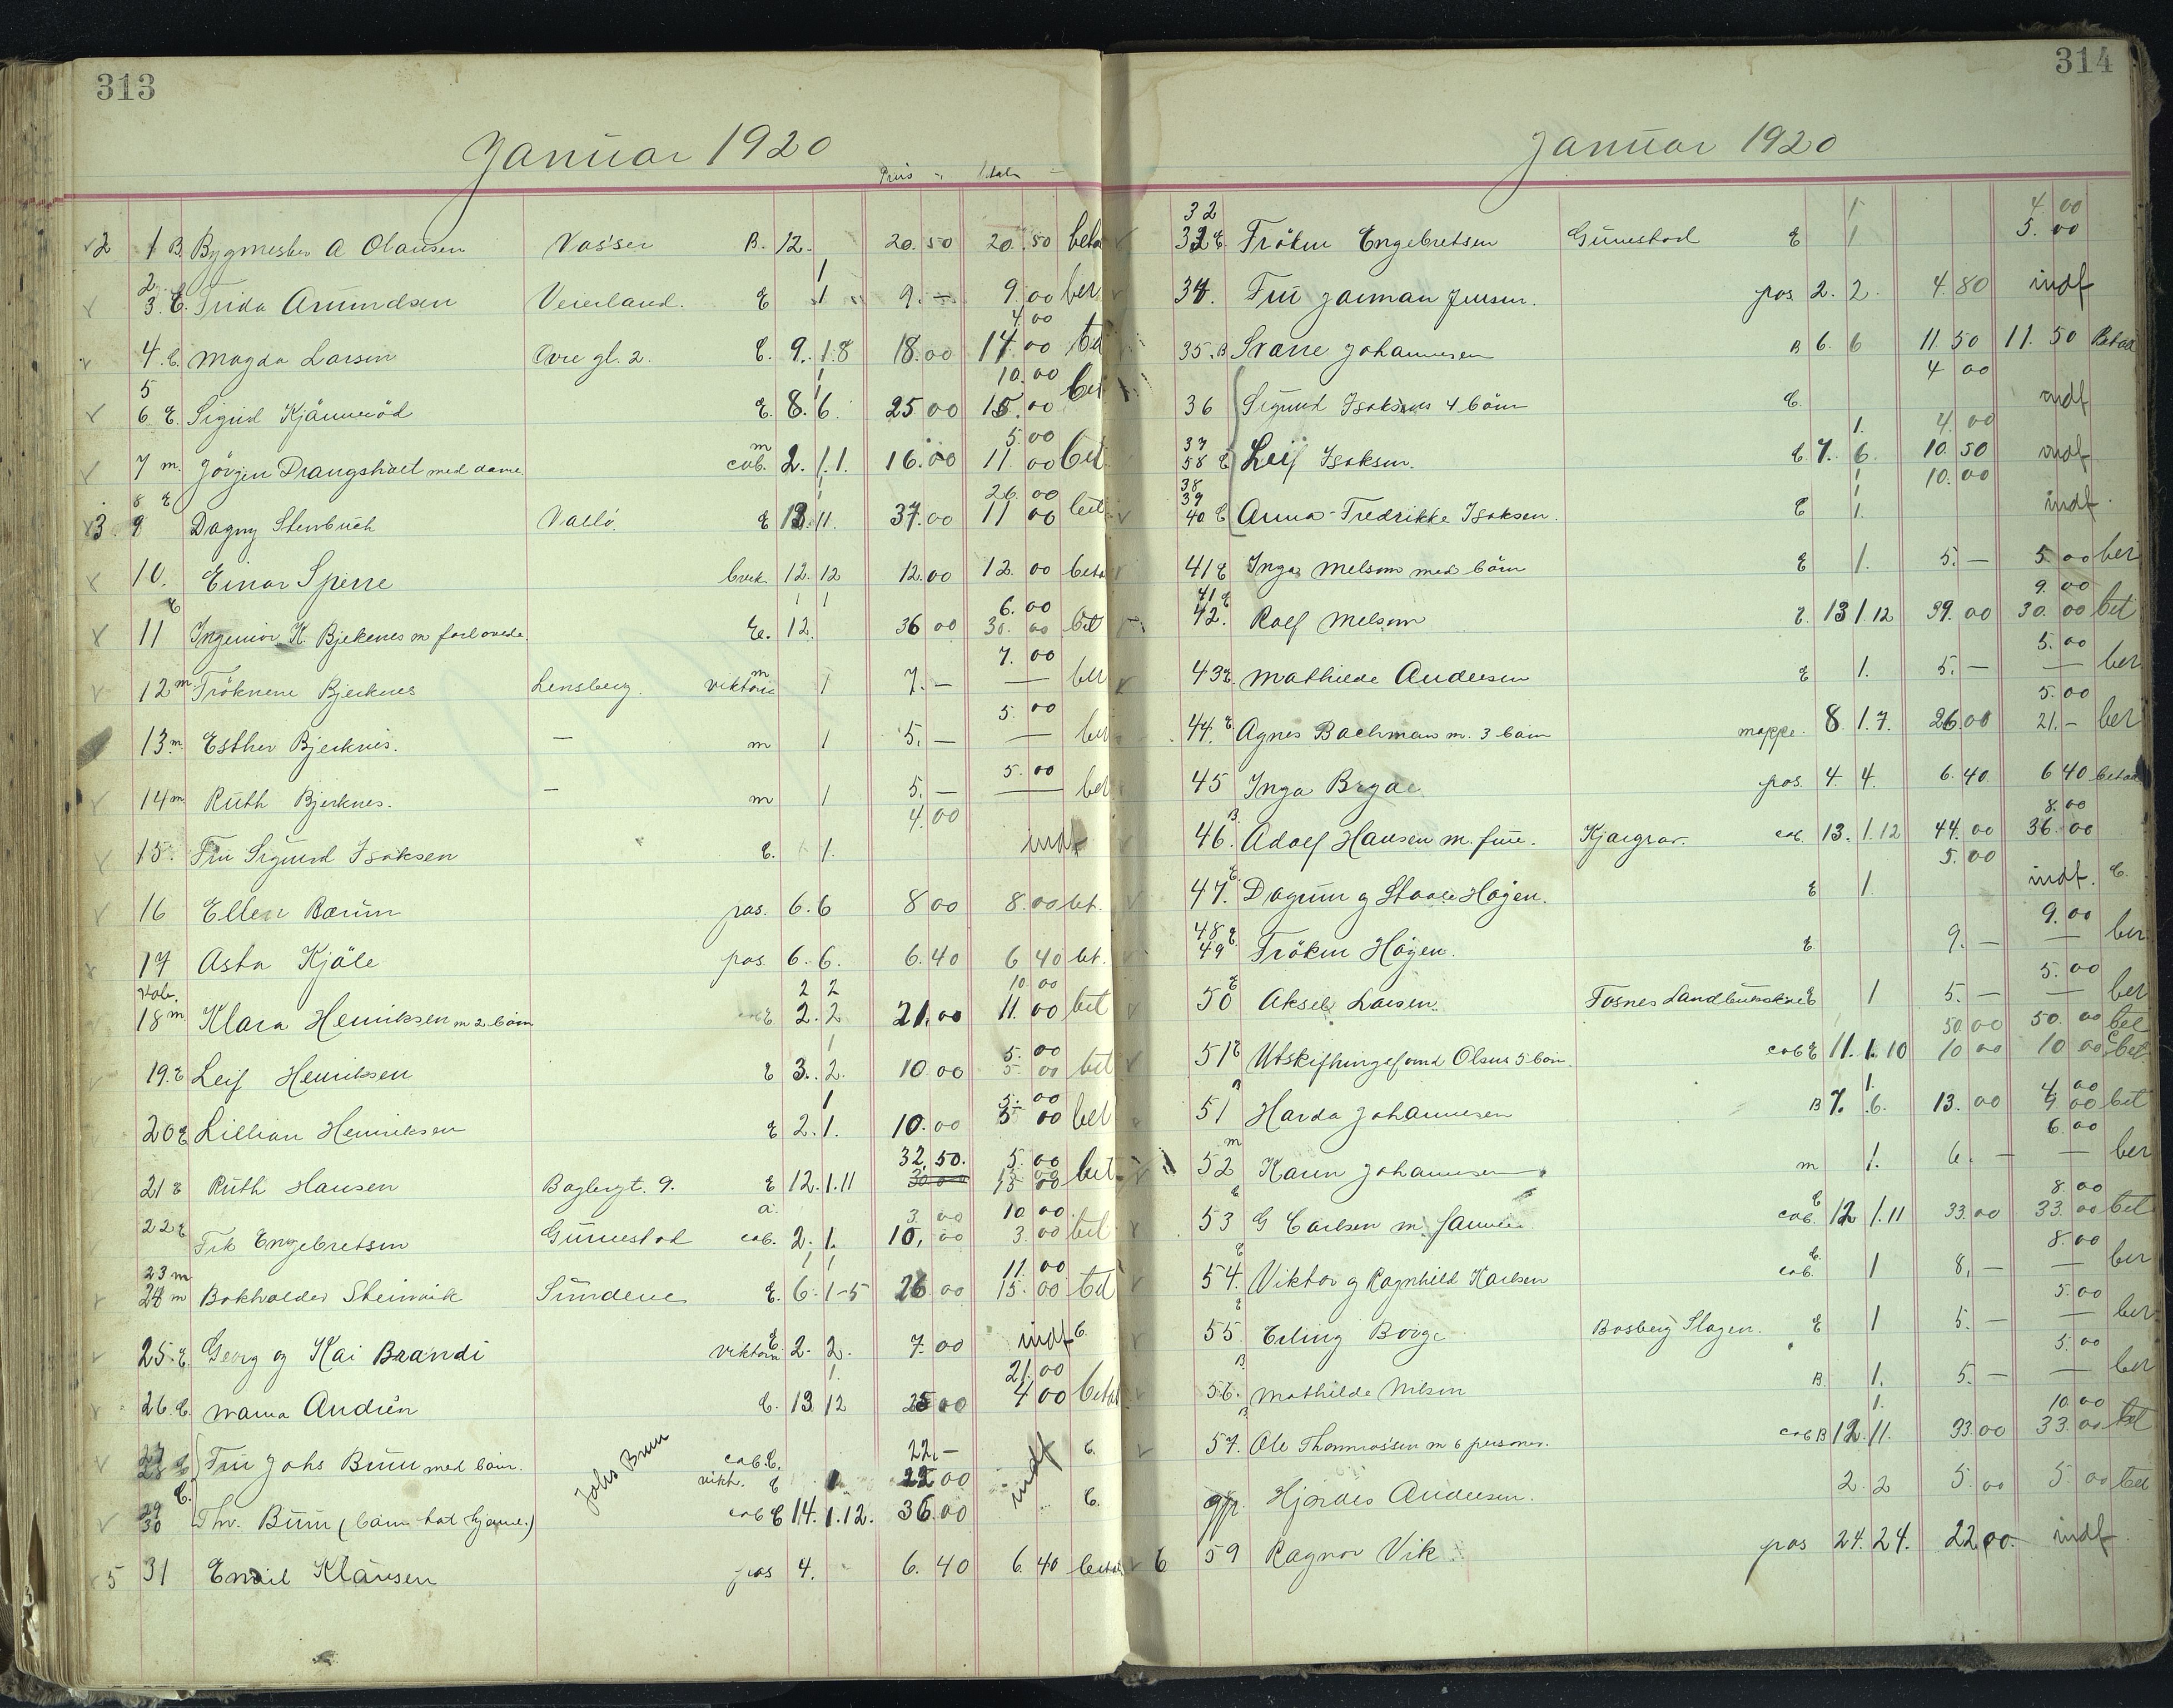 313
Januar 1920
Pris
2 1 B. Bygmester A Olausen Vasser B. 12. 20.50 20.50
2 1
3. E. Frida Amundsen Veierland. E 1 9.— 9.00 ber
4.00
4. E. Magda Larsen Øvre gl. 2. E. 9. 1.8 18.00 14.00 bet
5 1 10.00
6 E. Sigrid Kjønnerød E. 8. 6. 25.00 15.00 bet
m 5.00
7 m. Jörgen Drangsholt med dame cab. 2. 1.1. 16.00 11.00 bet
8 E 1 26.00
3 9 Dagny Stenbuch Vallö. E 13. 11. 37.00 11 00 bet
10. Einar Sperre brek. 12. 12 12.00 12.00
E 1 1 6.00
11 Ingeniør K. Bjerknes m forlovede E. 12. 36 00 30.00 bet
m 7.00
12 m Fröknene Bjerknes viktoria 1 7.— — ber
5.00
13. m. Esther Bjerknes. — m 1 5.— — ber
5.00
14 m Ruth Bjerknes. — m 1 5.— — ber
4.00
15. Fru Sigurd Isaksen E. 1. indf
16 Ellen Bærum pas. 6. 6 8 00 8.00 bet.
17 Asta Kjøle pos. 6. 6. 6.40 6 40 bet.
2 2 10 00
18 m Klara Henriksen m 2 barn E 2. 2 21.00 11.00 bet
1 5.00
19. E Leif Henriksen E 3. 2. 10.00 5.00 bet
1 5.00
20 E Lillian Henriksen E 2. 1. 10.00 5 00 bet
32.50. 5.00
21 E Ruth Hansen Baglergt. 9. E 12. 1.11 30.00 15 00 bet
a. 3.00 10.00
22 E Frk Engebretsen Gunnestad cab. 2. 1. 10.00 3.00 bet
23 m 1 1 11.00
24 m Bokholder Steinvik Sundene E. 6. 1-5 26 00 15.00 bet
E. E.
25. E. Georg og Kai Brandi viktoria 2. 2. 7.00 indf
1. 21.00
26. E. Andrén E. 13 12 25 00 4 00
27 cab. E. 22.— E.
28 E Fru Johs Bruun med barn. vikt. E 1 22 00 indf
Johs Bruun
E.
29
30 Thv. Bruun (barn hat hjemme.) cab E 14. 1.12. 36.00 E.
5 31 Emil Klausen pos 4. 6.40 6.40
314
Januar 1920
32 1 4.00
32 E. Fröken Engebretsen Gunnestad E 1 5.00
34. Fru Jarman Jensen. pos. 2. 2. 4.80 indf
35. B Svarre Johannesen B 6. 6 11.50 11.50 Betal
4 00
36 Sigurd Isaksens 4 barn E. indf
37 1. 4.00
58 E Leif Isaksen. E. 7. 6. 10.50 indf
38 1 10.00
39
40 E Anna-Fredrikke Isaksen. E 1. indf.
41 E Inga Melsom med barn E 1. 5.— 5.00 ber
41 E 9.00
42. Rolf Melsom E. 13 1.12 39.00 30.00 bet
5.00
43 E. Mathilde Andersen E 1. 5.— — ber
5.00
44. E Agnes Bachman m. 3 barn mappe. 8 1.7. 26.00 21.— ber
45 Inga Brydø pos. 4. 4. 6.40 6 40 betal
B. 8.00
46. Adolf Hansen m. frue. Kjærgrav. cab. 13. 1.12 44.00 36.00
E. 5.00
47. Dagrun og Staale Högen. E 1. indf. E.
48 E 9.00
49 Fröken Högen. E. 9.— — ber
E 5.00
50 Aksel Larsen. Fosnes Landbruksskole E 1 5.— — ber
50.00 50.00 bet
51 E Utskiftningsformd Olsens 5 barn. cab E 11. 1. 10 10 00 10 00 bet
1. 4.00
51 Harda Johannesen B 7. 6. 13.00 9.00 bet
m 6.00
52 Karin Johannesen m 1. 6.— — ber
E E 8 00
53 G Carlsen m. familie. cab. 12 1.11 33.00 33.00 bet
E E. 8.00
54. Viktor og Ragnhild Karlsen cab. 1 8.— — ber
E 5.00
55 Erling Borge Basberg Slagen. E 1 5.— — ber
B. 5.00
56. Mathilde Nilsen B. 1. 5.— — ber
B 1. 10.00
57. Ole Thommassen m 6 personer. cab B 12. 11. 33.00 33.00 bet
Hjørdis Andersen. 2. 2 5.00 5.00 bet
6 59 Ragnar Vik pos 24. 24. 22.00.— indf